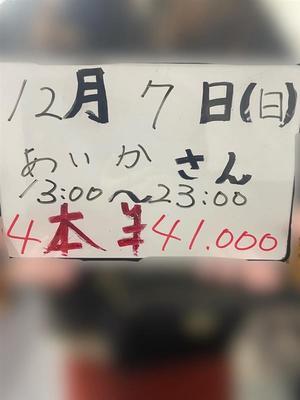 12月7日(日)
あいかさん
13:00〜23:00
4本¥41.000